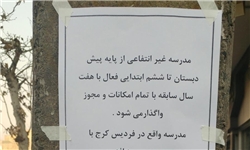 مدرسه غیر انتفاعی از پایه پیش
دبستان تا ششم ابتدایی فعال با هفت
سال سابقه با تمام امکانات و مجوز
واگذارمی شود .
مدرسه واقع در فردیس کرج با